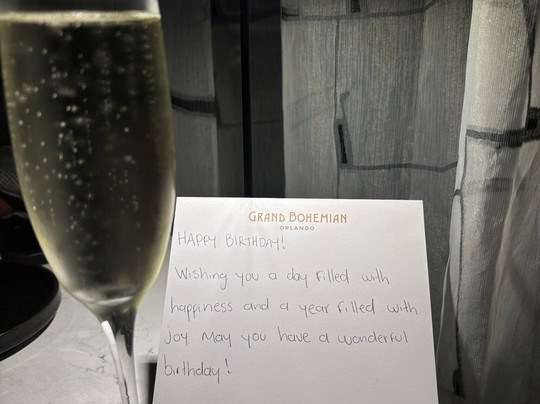 GRAND BOHEMIAN
ORLANDO
HAPPY BIRTHDAY!
Wishing you a day filled with
happiness and a year filled with
joy. May you have a wonderful
birthday!